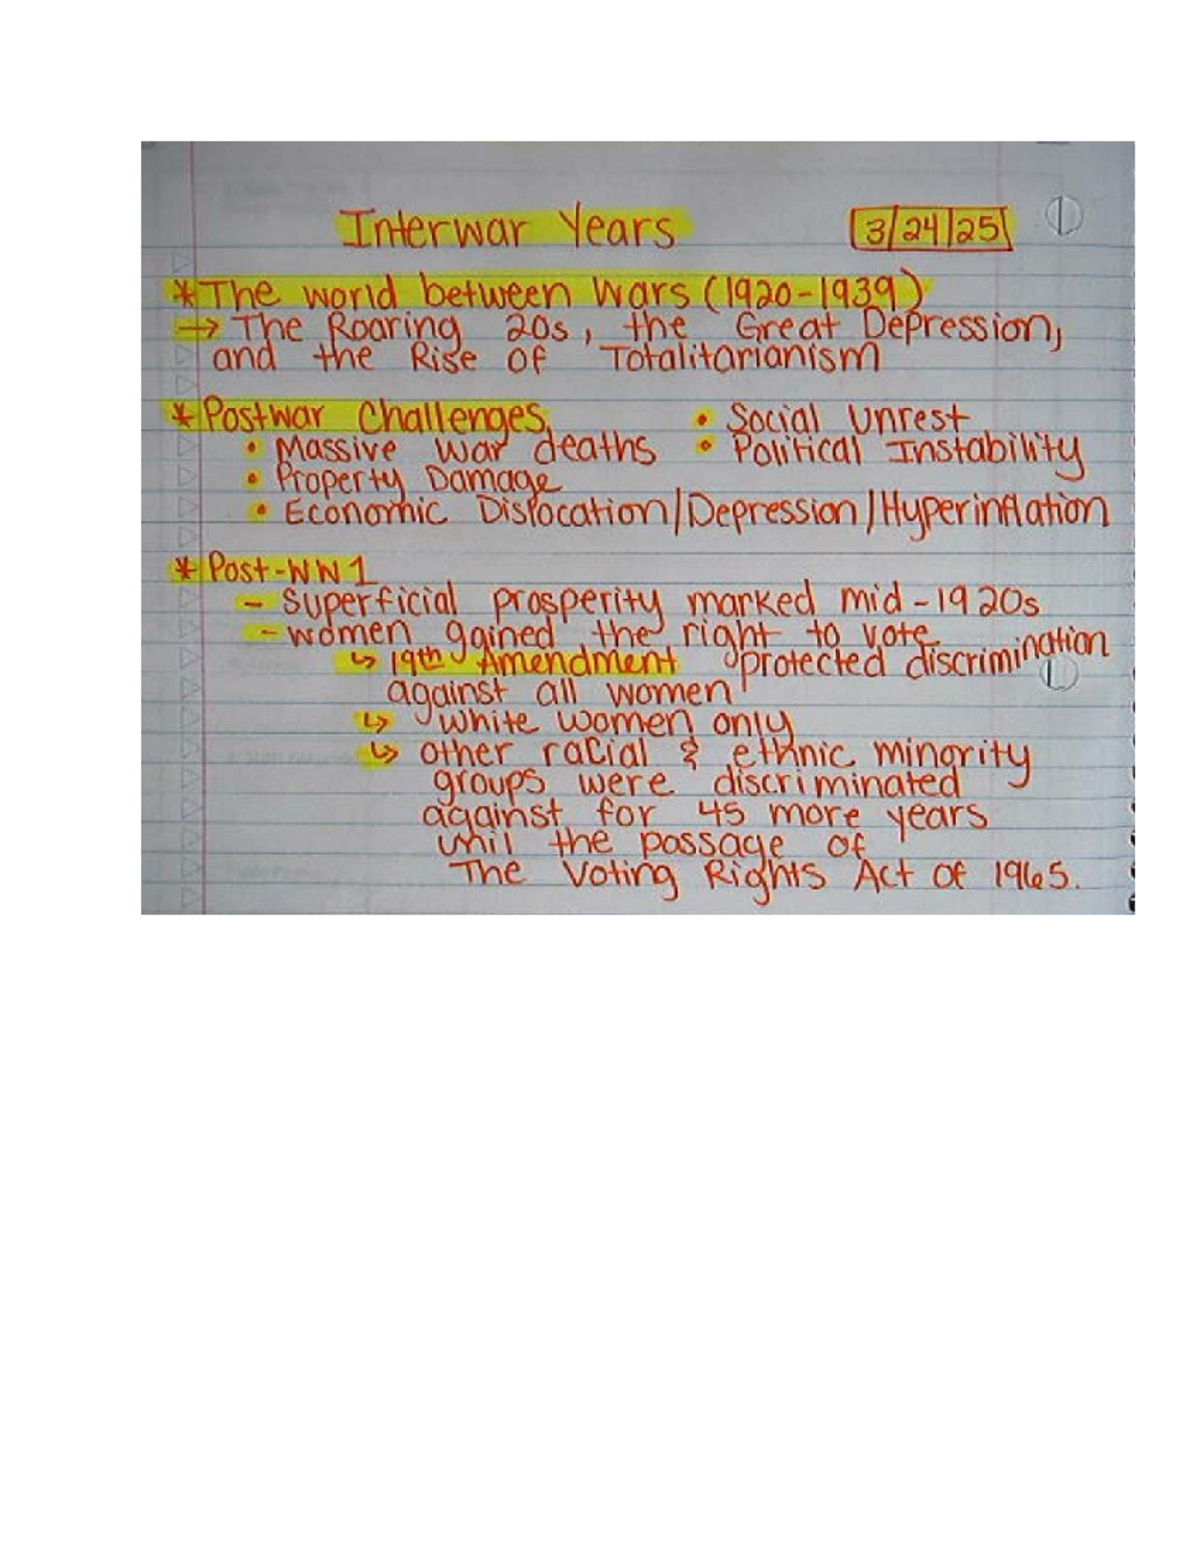 Interwar Years 3/24/25
* The world between Wars (1920-1939)
→ The Roaring 20s, the Great Depression,
and the Rise of Totalitarianism
* Postwar Challenges
• Massive war deaths
• Property Damage
• Economic Dislocation/Depression/Hyperinflation
• Social Unrest
• Political Instability
* Post-WW1
- Superficial prosperity marked mid-1920s
- women gained the right to vote
↳ 19th Amendment protected discrimination
against all women
↳ White women only
↳ other racial & ethnic minority
groups were discriminated
against for 45 more years
unil the passage of
The Voting Rights Act of 1965.